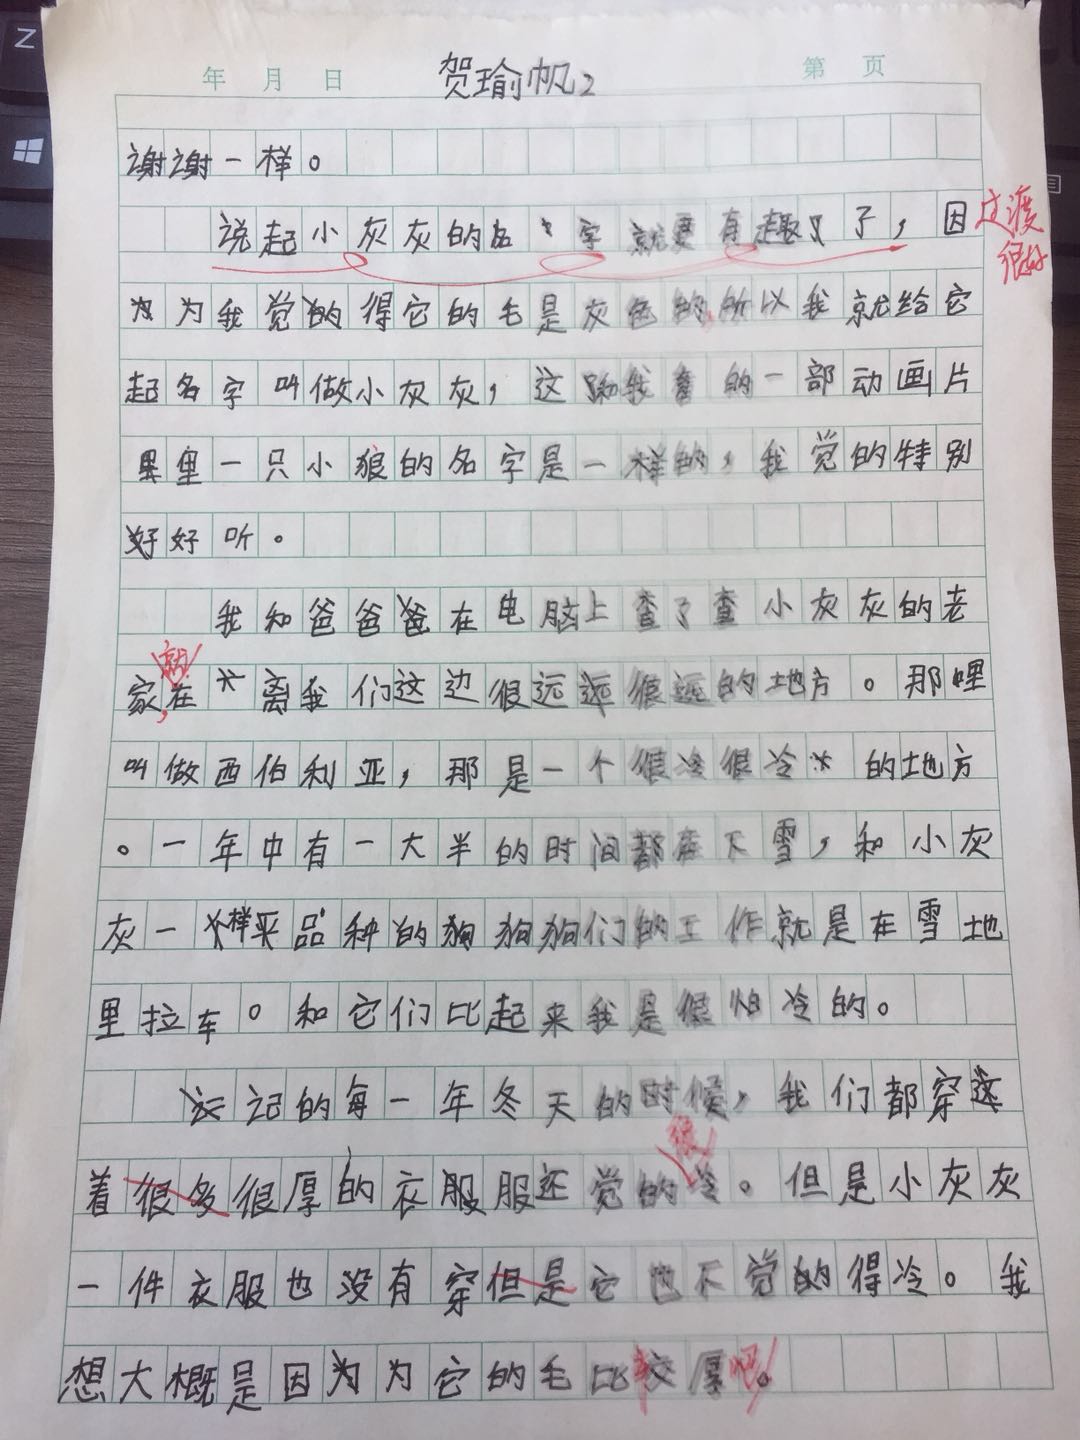 年 月 日 贺瑜帆2 第 页
谢谢一样。
说起小灰灰的名字就更有趣了，因 过渡
很好
为我觉得它的毛是灰色的,所以我就给它
起名字叫做小灰灰，这跟我看的一部动画片
里一只小狼的名字是一样的，我觉的特别
好听。
我和爸爸在电脑上查了查小灰灰的老
就
家,在离我们这边很远很远的地方。那哩
叫做西伯利亚，那是一个很冷很冷的地方
。一年中有一大半的时间都在下雪，和小灰
灰一样品种的狗狗们的工作就是在雪地
里拉车。和它们比起来我是很怕冷的。
记的每一年冬天的时候，我们都穿
很
着很多很厚的衣服还觉的冷。但是小灰灰
一件衣服也没有穿但是它也不觉得冷。我
想大概是因为它的毛比较厚吧。